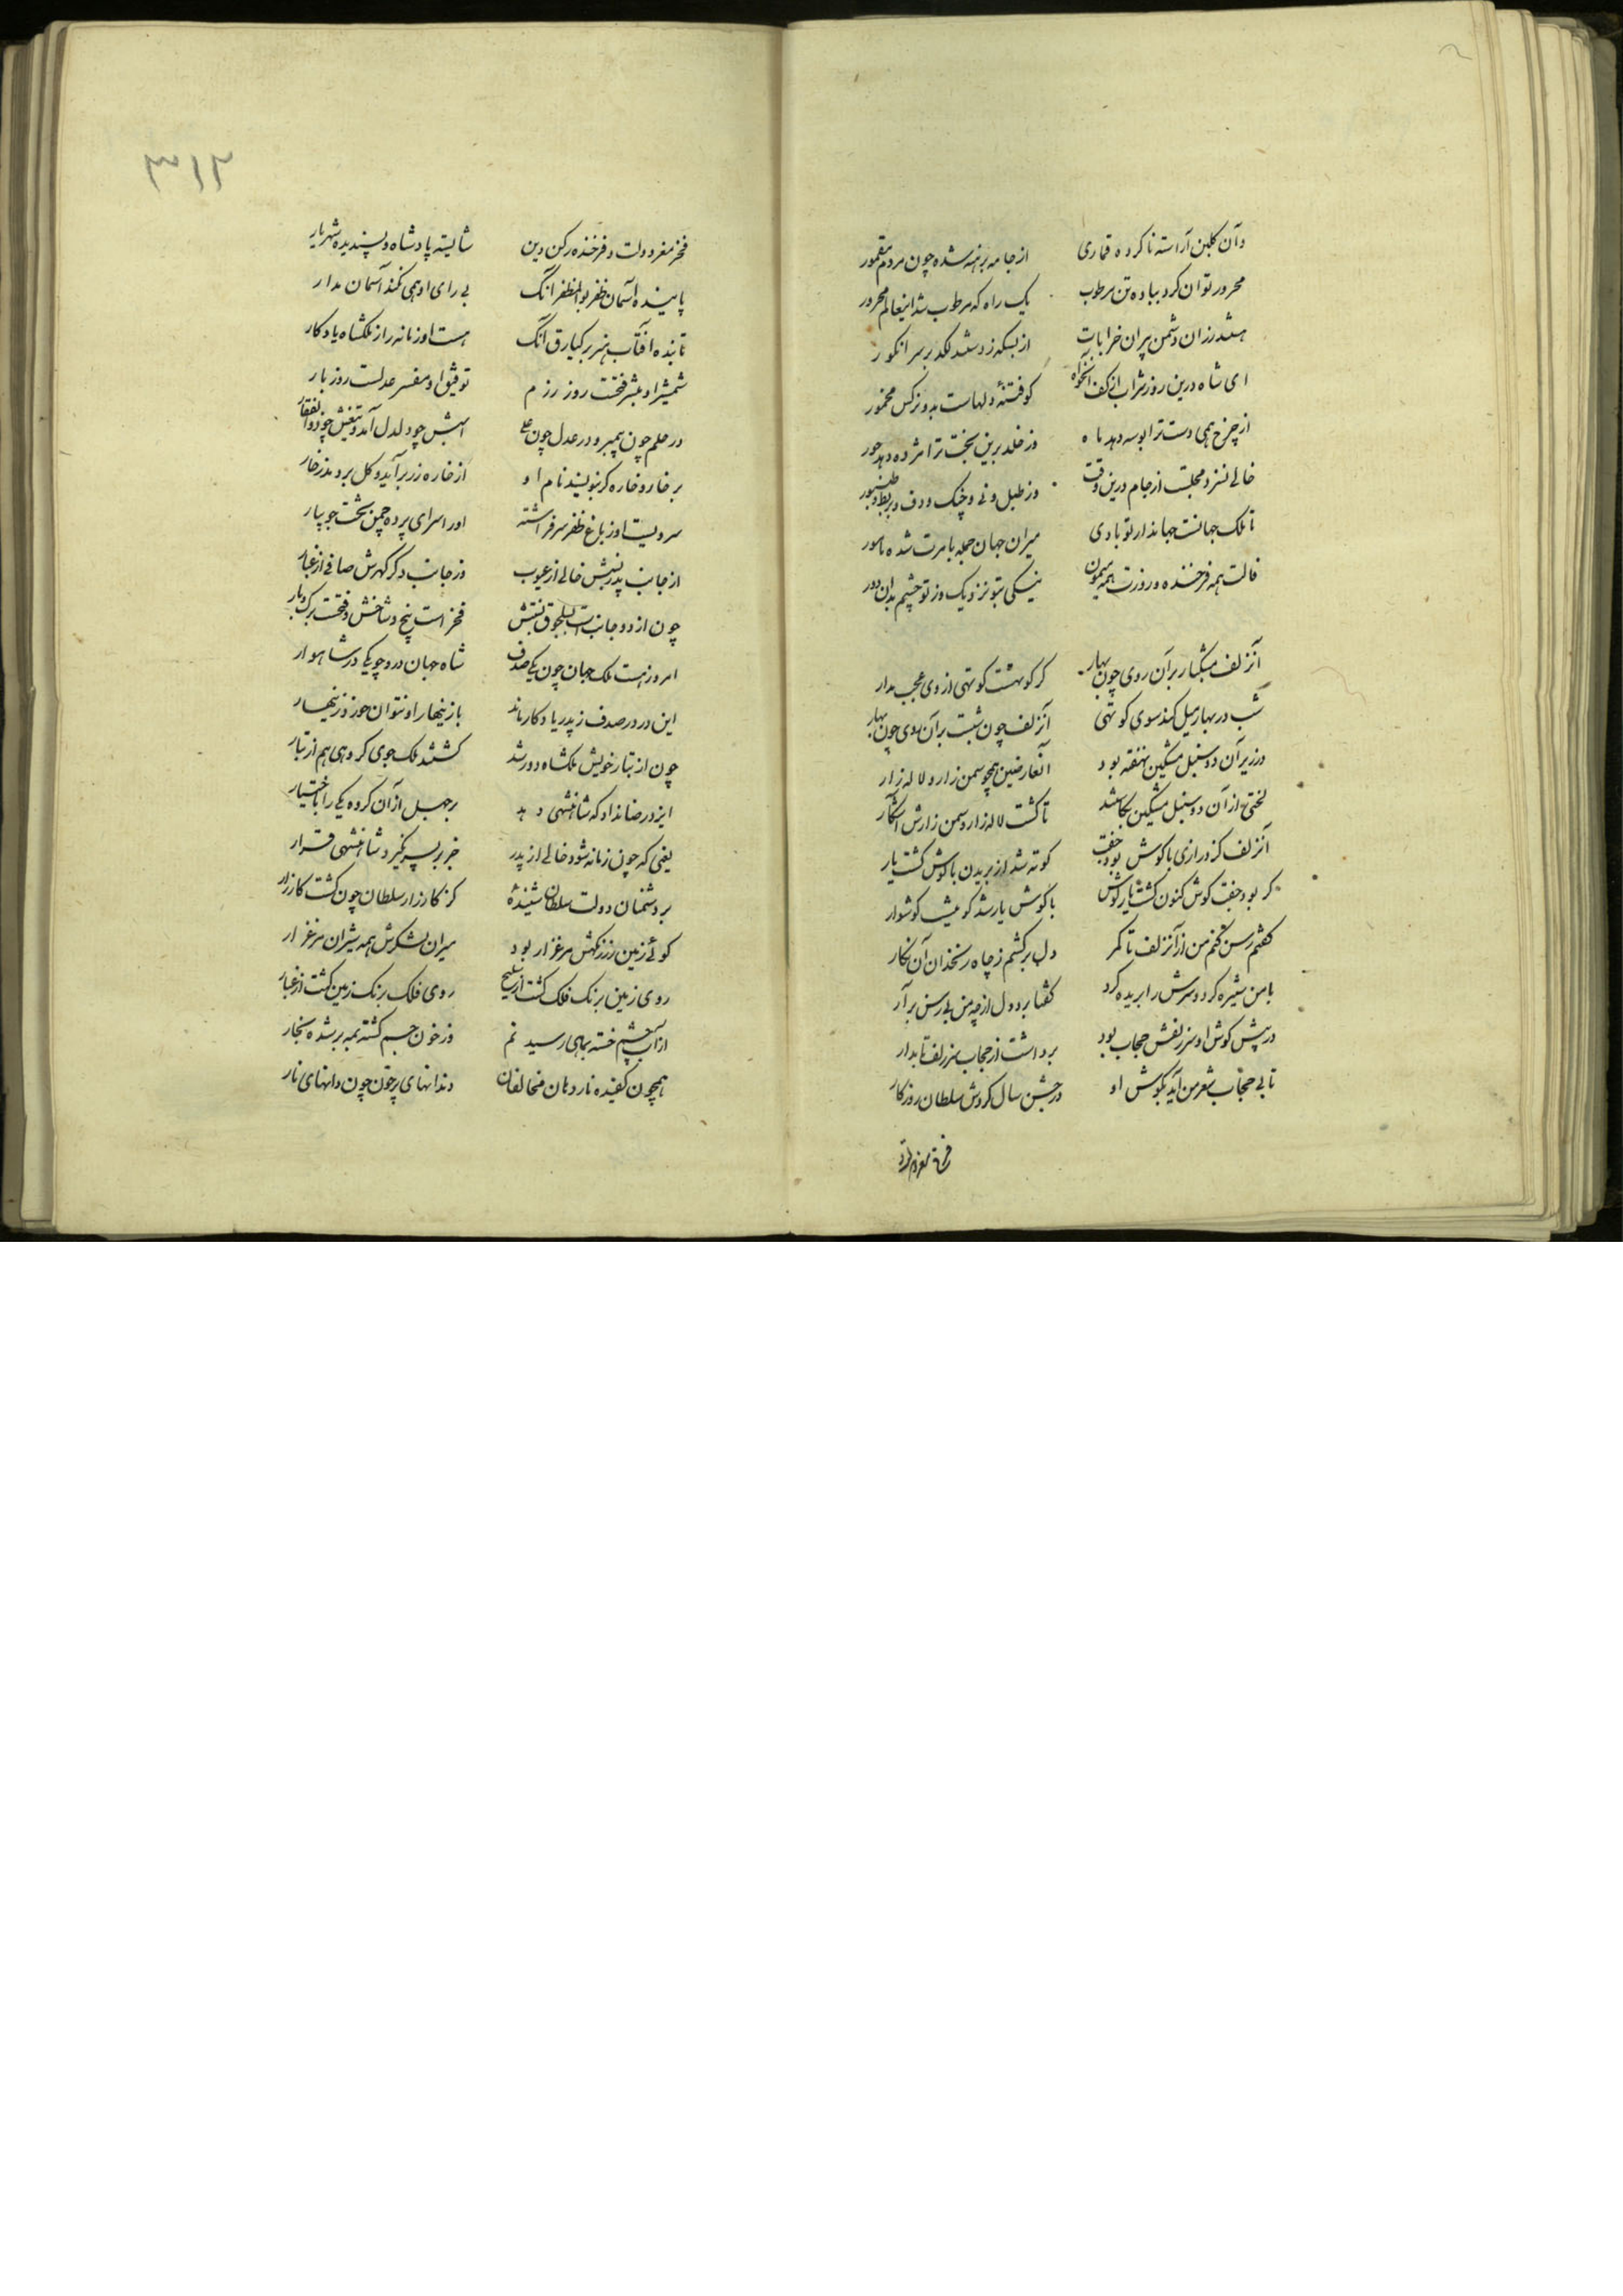 وآن گلبن آراسته ناکرده قماری از جامه برهنه شده چون مردم مقمور
محرور توان کرد بباده تن مرطوب یک راه که مرطوب شد اینعالم محرور
رزان دشمن پیران خرابات از بسکه زدستند لکد بر سر انکور
ای شاه درین روز شراب از کف آنخواه کو فتنهٔ دلهاست بدو نرکس مخمور
از چرخ همی دست ترا بوسه دهد ماه وز خلد برین بخت ترا مژده دهد حور
خالی نسزد مجلست از جام درین وقت وز طبل و نی و چنک و دف و بربط و طنبور
تا ملک جهانست جهاندار تو بادی میران جهان جمله بامرت شده مامور
فالت همه فرخنده و روزت همه میمون نیکی بتو نزدیک وز تو چشم بدان دور
آنزلف مشکبار بر آن روی چون بهار گر کوتهست کوتهی از وی عجب مدار
شب در بهار میل کند سوی کوتهی آنزلف چون شبست بر آن روی چون بهار
در زیر آن دو سنبل مشکین نهفته بود آنعارضین همچو سمن زار و لاله زار
لختی از آن دو سنبل مشکین بکاستند تا کشت لاله زار و سمن زارش آشکار
آنزلف کز درازی با کوش بود جفت کوته شد از بریدن با کوش کشت یار
کر بود جفت کوش کنون کشت یار کوش با کوش یار شد کو عیب کوشوار
کفتم رسن کنم من از آنزلف تا کمر دل برکشم ز چاه زنخدان آن نکار
با من ستیزه کرد و سرش را بریده کرد کفتا برو دل از چه من بی رسن برآر
در پیش کوش او سر زلفش حجاب بود برداشت از حجاب سر زلف تابدار
تا بی حجاب شعر من آید بکوش او در جشن سال کردش سلطان روزکار
فخر
فخر مغر دولت و فرخنده رکن دین شایسته پادشاه و پسندیده شهریار
پاینده آسمان ظفر بوالمظفر آنک بی رای او همی نکند آسمان مدار
تابنده آفتاب هنر برکیارق آنک هست او زمانه را ز ملکشاه یادکار
شمشیر او مبشر فتحست روز رزم توفیق او مفسر عدلست روز بار
در علم چون پیمبر و در عدل چون علی اسبش چو دلدل آمد و تیغش چو ذوالفقار
بر خار و خاره کر بنویسند نام او از خاره زر برآید و کل بردمد ز خار
سرویست او ز باغ ظفر سر فراشته او را سرای پرده چمن تخت جویبار
از جانب پدر نسبش خالی از عیوب وز جانب دکر کهرش صافی از غبار
چون از دو جانب است بسلجوق نسبتش فخر است بیخ و شاخش و فتحست برک و بار
امروز هست ملک جهان چون یکی صدف شاه جهان درو چو یکی در شاهوار
این در در صدف ز پدر یادکار ماند بازینهار او نتوان خورد زینهار
چون از تبار خویش ملکشاه دور شد کشتند ملک جوی کروهی هم از تبار
ایزد رضا نداد که شاهنشهی دهد بر جهل از آن کروه یکی را باختیار
یعنی که چون زمانه شود خالی از پدر جز بر پسر نکیرد شاهنشهی قرار
بر دشمنان دولت سلطان شنیدهٔ کز کارزار سلطان چون کشت کار زار
کوئی زمین رزمکهش مرغزار بود میران لشکرش همه شیران مرغزار
روی زمین برنک فلک کشت از سلیح روی فلک برنک زمین کشت از غبار
از آب چشم خسته بماهی رسید نم وز خون جسم کشته بمه بر شده بخار
همچون کفیده نار دهان مخالفان دندانهای پر خون چون دانهای نار
۳۱۲